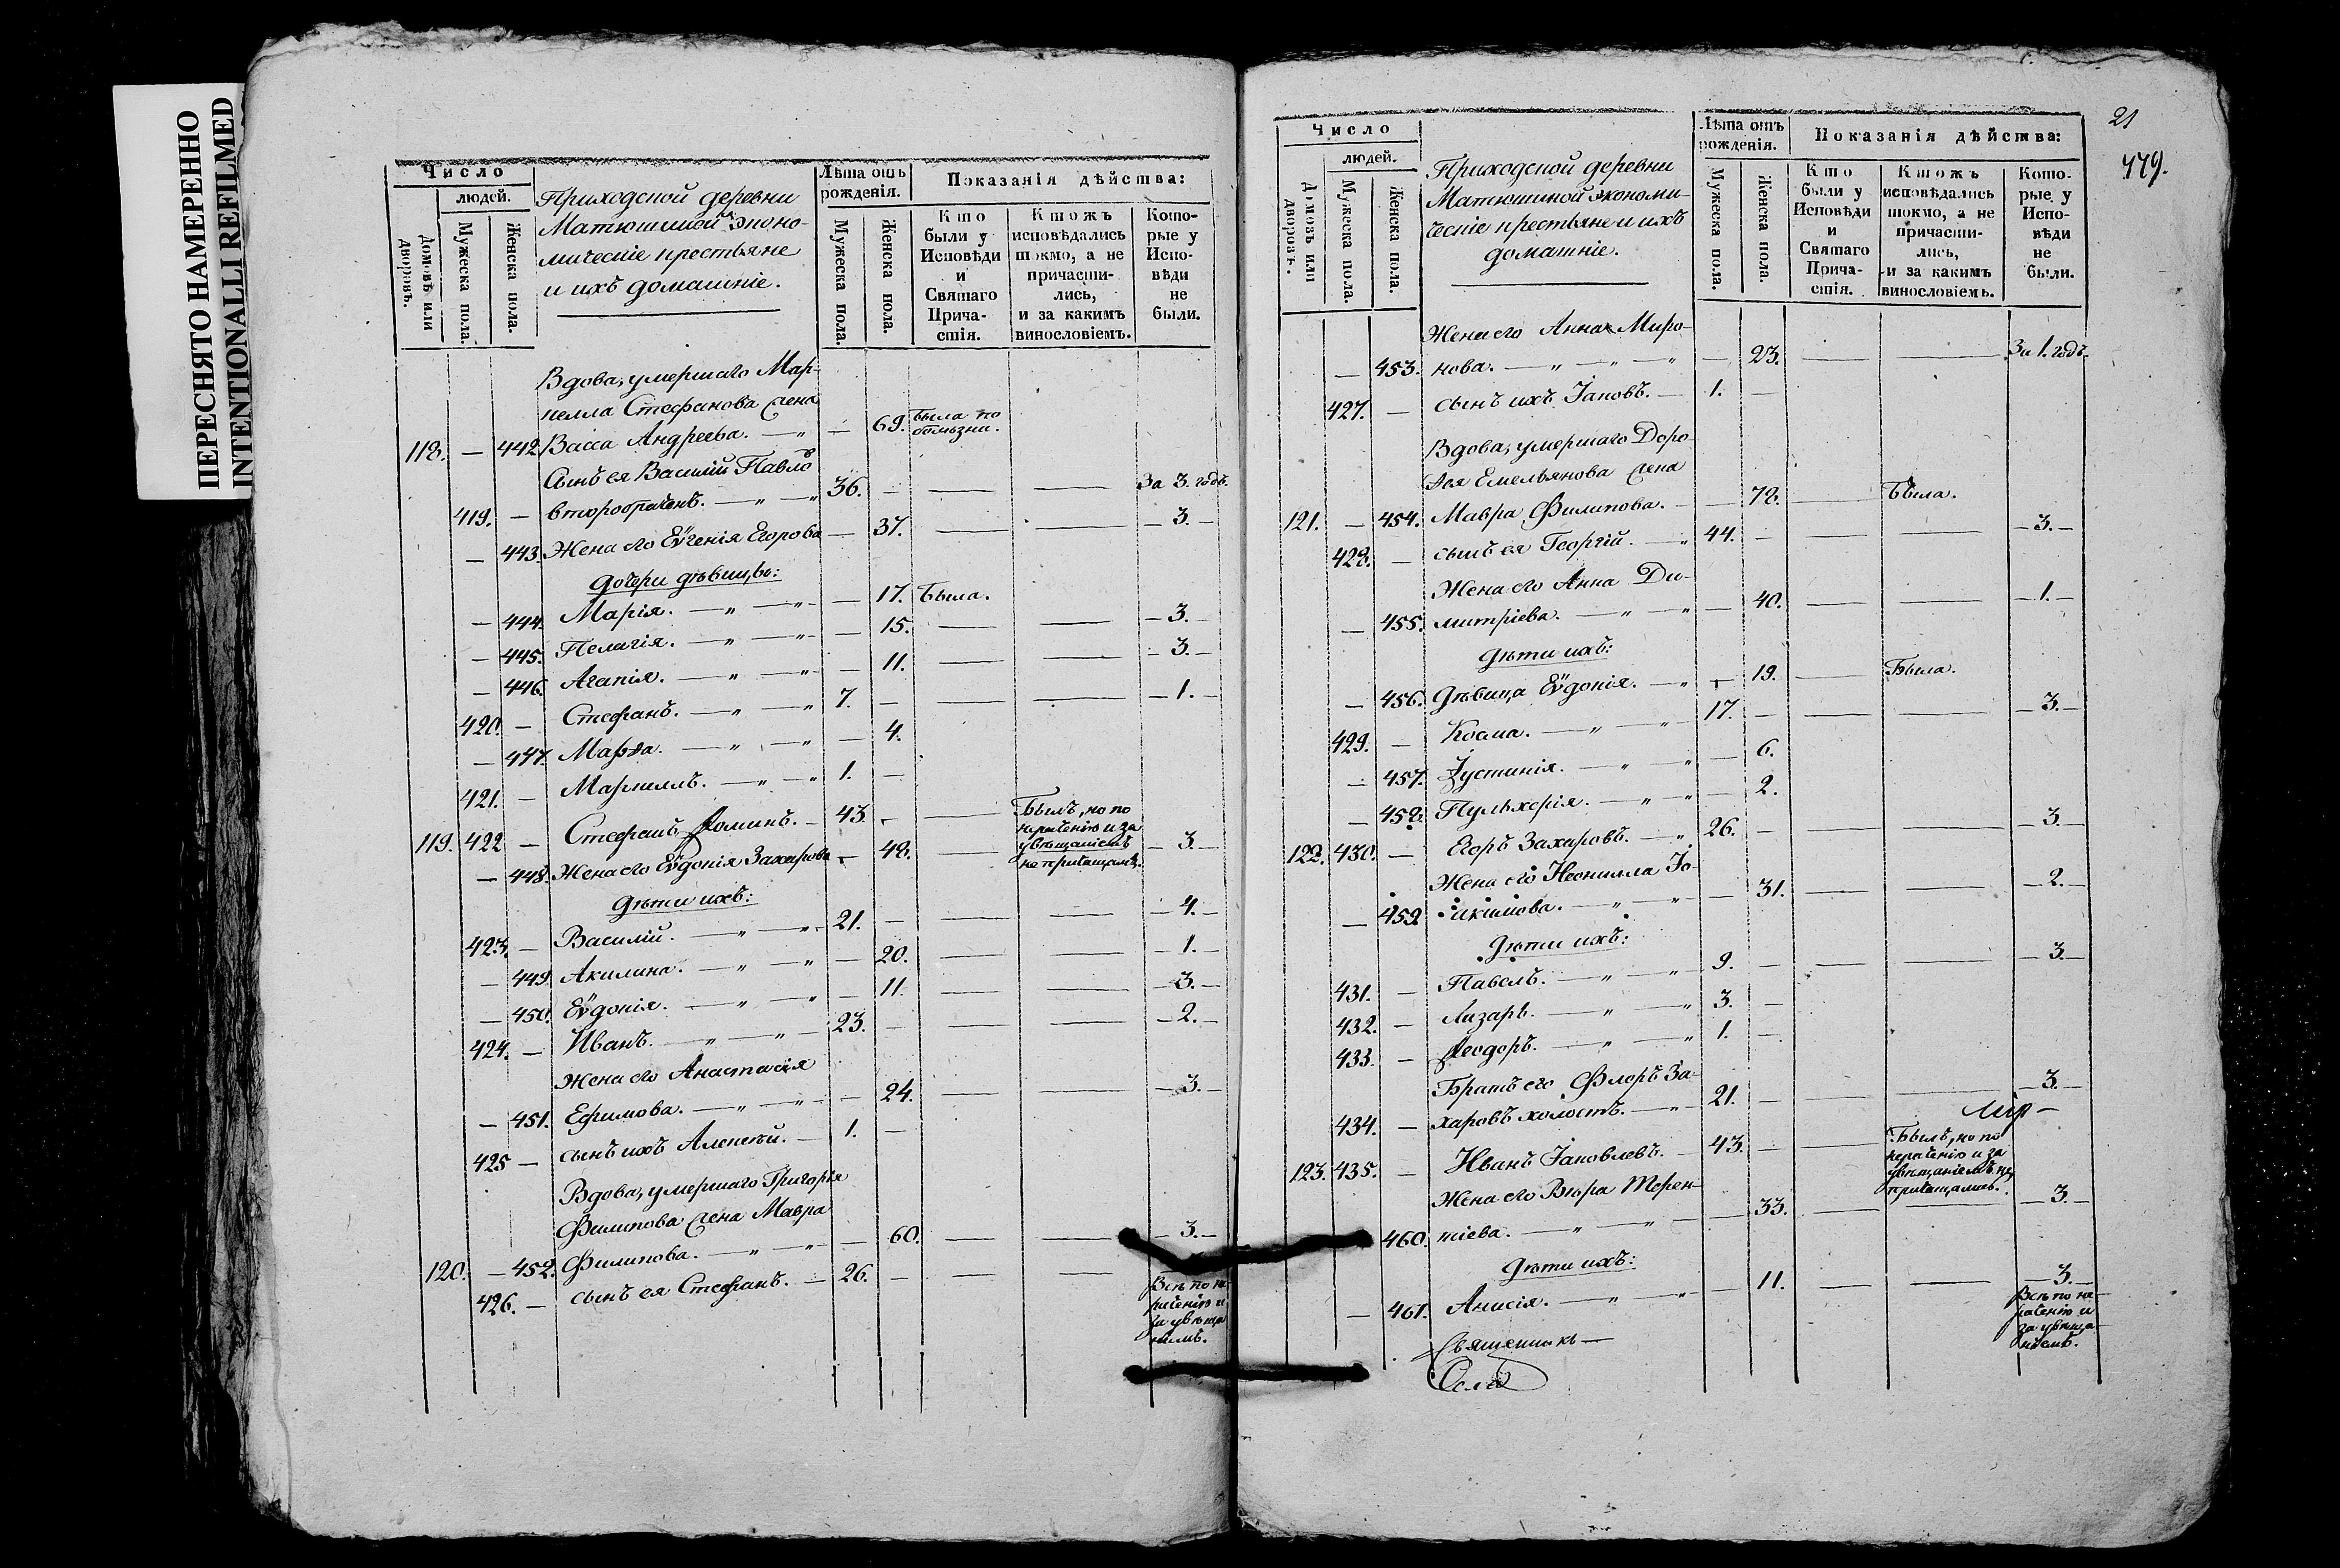 ПЕРЕСНЯТО НАМЕРЕННО
INTENTIONALLI REFILMED
Число
людей.
Домовъ или дворовъ.
Мужеска пола.
Женска пола.
Приходской деревни
Матюшиной эконо-
мическіе крестьяне
и ихъ домашніе.
Лѣта отъ рожденія.
Мужеска пола.
Женска пола.
Показанія дѣйства:
Кто были у Исповѣди и Святаго Прича-стія.
Ктожъ исповѣдались токмо, а не причасти-лись, и за какимъ винословіемъ.
Кото-рые у Испо-вѣди не были.
Вдова, умершаго Мар-
келла Стефанова жена
118. — 442. Васса Андреева. — „ — 69. была по болѣзни.
Сынъ ея Василій Павло
419. — второбрачнъ. — „ — „ 36. — За 3. годъ.
— 443. Жена его Евгенія Егорова — 37. — 3. —
дочери дѣвицы:
— 444. Марія. — „ — „ — 17. Была.
— 445. Пелагія. — „ — „ — 15. — 3. —
— 446. Агапія. — „ — „ — 11. — 3. —
420. — Стефанъ. — „ — „ 7. — 1. —
— 447. Марѳа. — „ — „ — 4.
421. — Маркеллъ. — „ — „ 1. —
119. 422 — Стефанъ Ѳоминъ. — 43. — Былъ, но по нераченію и за увѣщаніемъ не причащался.
— 448. Жена его Евдокія Захарова — 48. — 3. —
дѣти ихъ:
423. — Василій. — „ — „ 21. — 4. —
— 449. Акилина. — „ — „ — 20. — 1. —
— 450. Евдокія. — „ — „ — 11. — 3. —
424. — Иванъ. — „ — „ 23. — 2. —
Жена его Анастасія
— 451. Ефимова. — „ — „ — 24. — 3. —
425 — сынъ ихъ Алексѣй. — 1. —
Вдова, умершаго Григорія
Филипова жена Мавра
120. — 452. Филипова. — „ — „ — 60. — 3. —
426. — сынъ ея Стефанъ. — 26. —
Всѣ по не-
раченію и
за увѣща
ніемъ.
21
479.
Число
людей.
Домовъ или дворовъ.
Мужеска пола.
Женска пола.
Приходской деревни
Матюшиной экономи-
ческіе крестьяне и ихъ
домашніе.
Лѣта отъ рожденія.
Мужеска пола.
Женска пола.
Показанія дѣйства:
Кто были у Исповѣди и Святаго Прича-стія.
Ктожъ исповѣдались токмо, а не причасти-лись, и за какимъ винословіемъ.
Кото-рые у Испо-вѣди не были.
Жена его Анна Миро-
— 453. нова. — „ — „ — „ — 23. — За 1. годъ.
427. — сынъ ихъ Іаковъ. — 1. —
Вдова, умершаго Доро-
ѳея Емельянова жена
121. — 454. Мавра Филипова. — 78. — Была.
428. — сынъ ея Георгій. — „ 44. — 3. —
Жена его Анна Ди-
— 455. митріева. — „ — „ — 40. — 1. —
дѣти ихъ:
— 456. Дѣвица Евдокія. — „ — 19. — Была.
429. — Косма. — „ — „ 17. — 3. —
— 457. Іустинія. — „ — „ — 6.
— 458. Пульхерія. — „ — „ — 2.
122. 430. — Егоръ Захаровъ. — „ 26. — 3. —
Жена его Неонилла Іо-
— 459 акимова. — „ — „ — 31. — 2. —
дѣти ихъ:
431. — Павелъ. — „ — „ 9. — 3. —
432. — Лазарь. — „ — „ 3. —
433. — Ѳеодоръ. — „ — „ 1. —
Братъ его Флоръ За-
434. — харовъ холостъ. — „ 21. — 3. —
123. 435. — Иванъ Іаковлевъ. — 43. — Былъ, но по нераченію и за увѣщаніемъ не причащался.
Жена его Вѣра Терен-
460. тіева. — „ — „ — 33. — 3. —
дѣти ихъ:
— 461. Анисія. — „ — „ — 11. — 3. —
Всѣ по не-
раченію и
за увѣща-
ніемъ.
Священникъ —